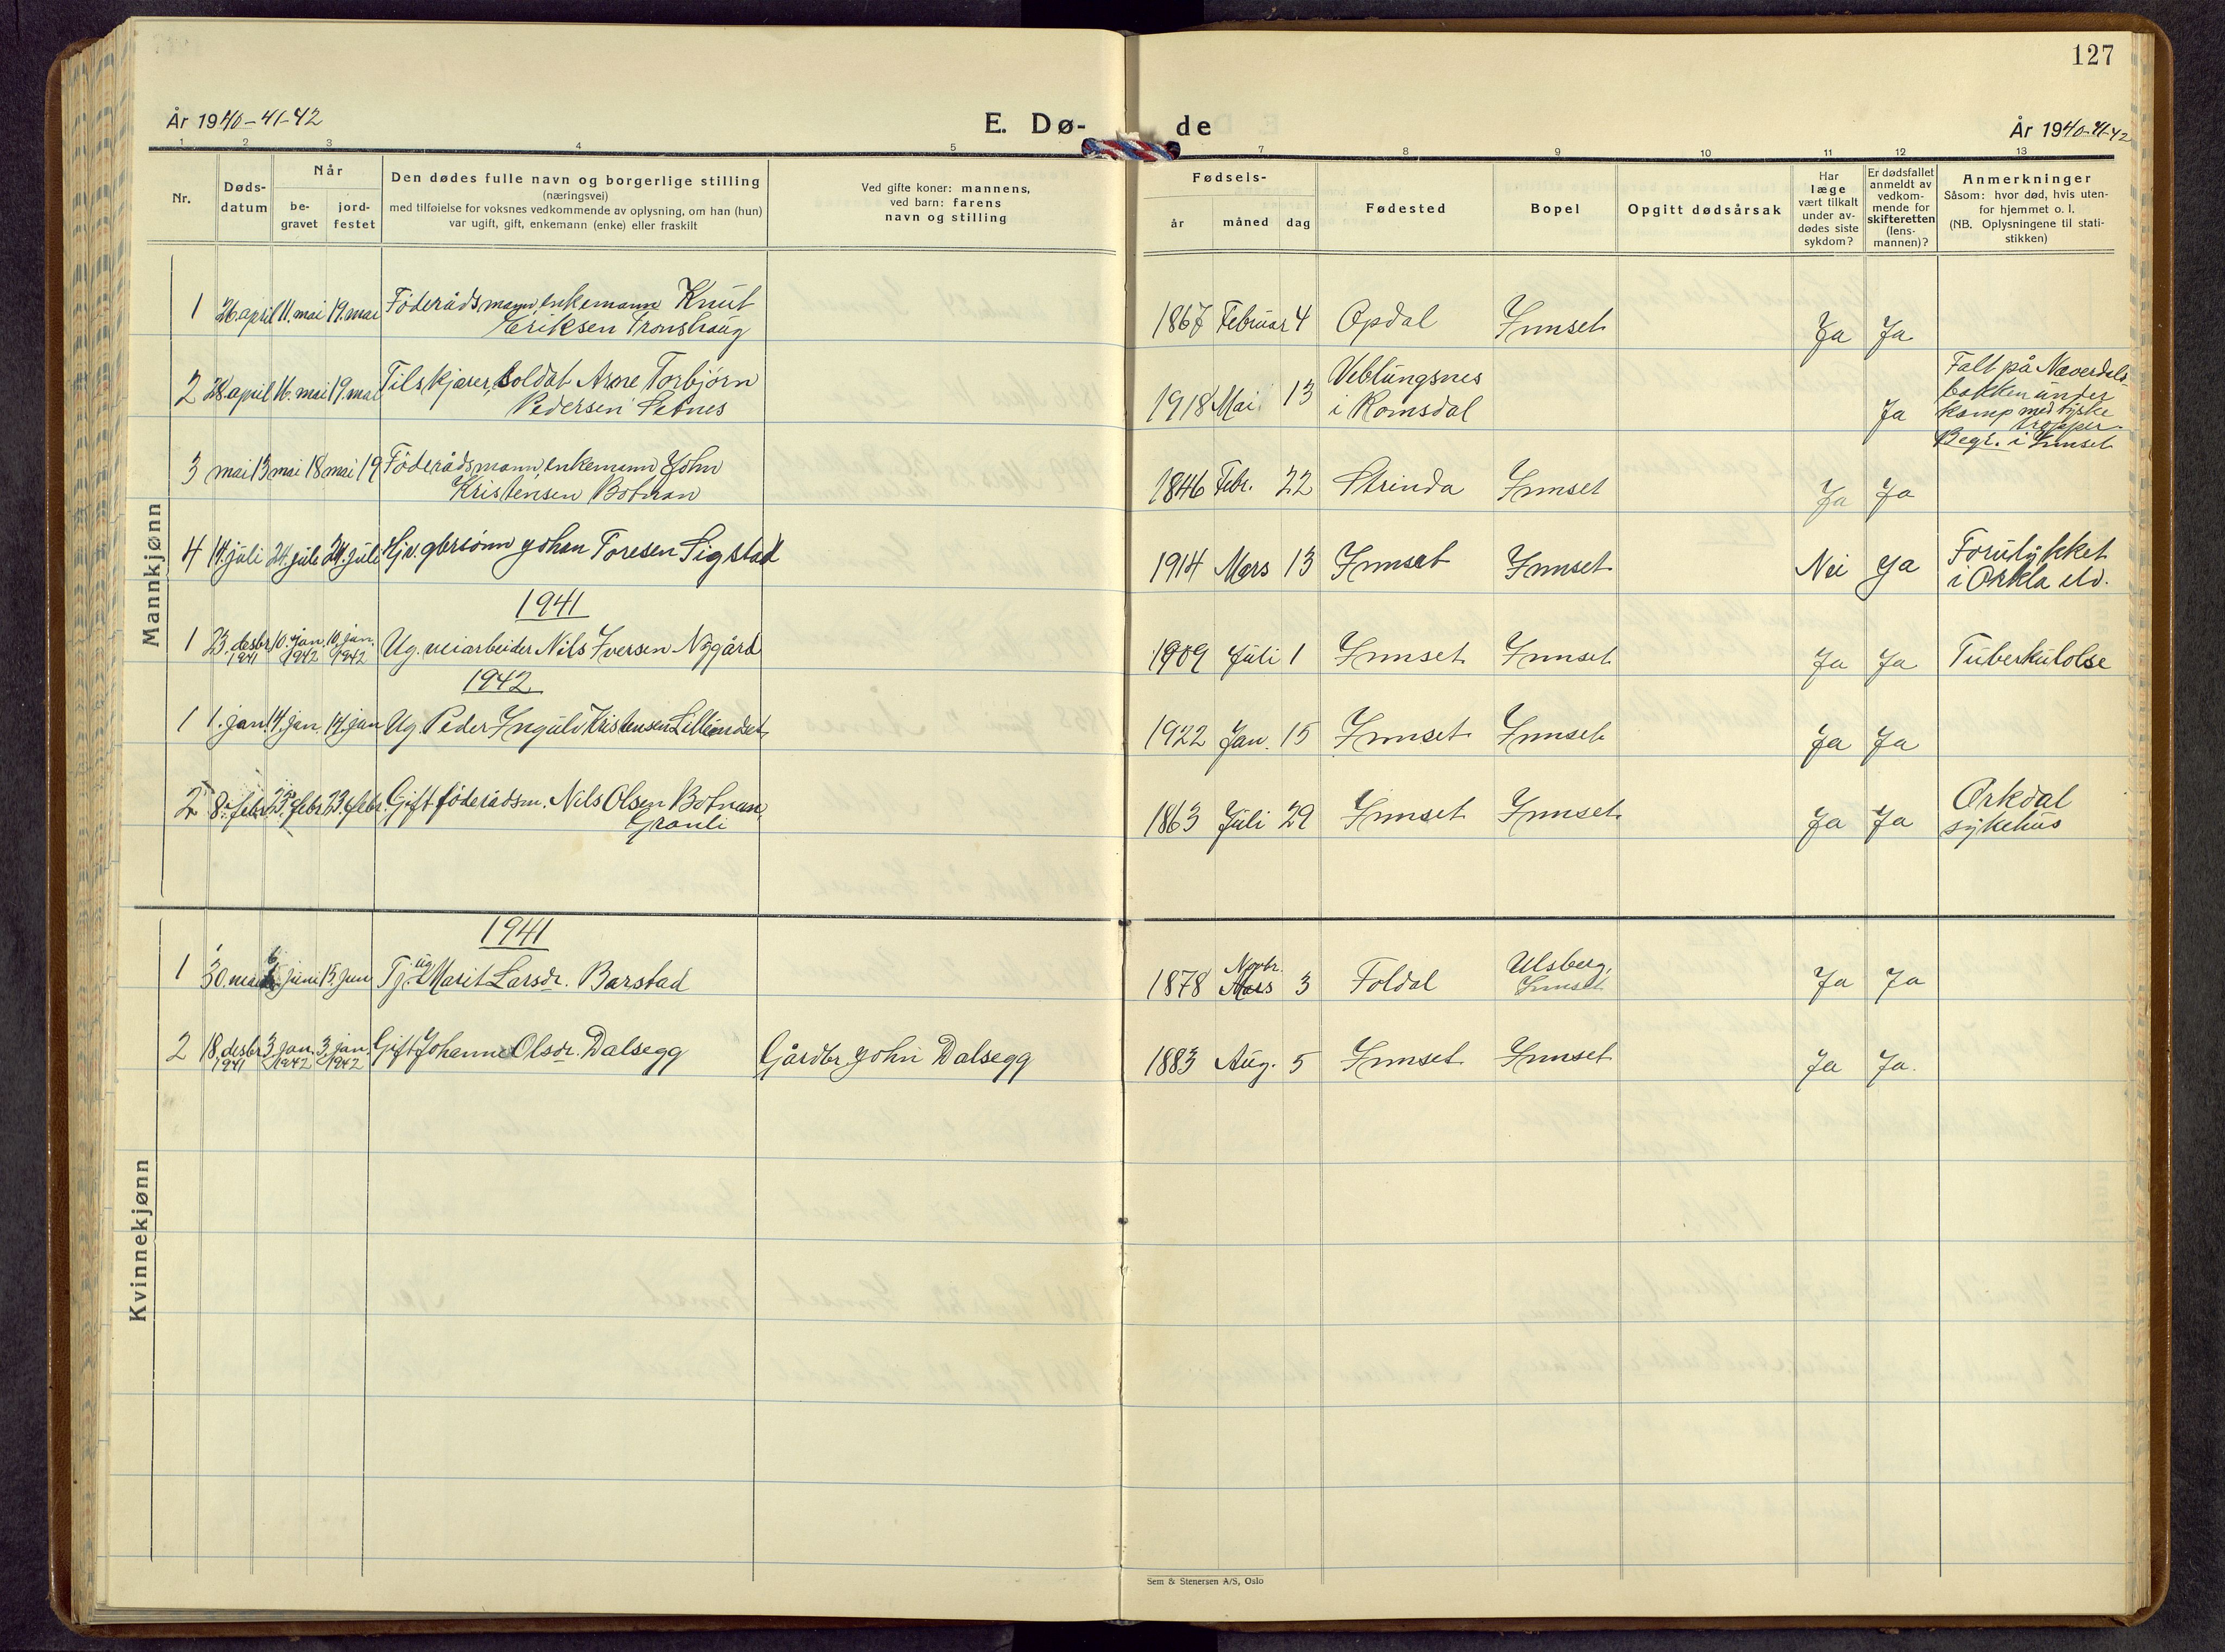 127
År 1940-41-42
E. Dø-
de
År 1940-41-42
1 2 3 4 5
7 8 9 10 11 12 13
Nr.
Døds-
datum
Når
be-
gravet
jord-
festet
Den dødes fulle navn og borgerlige stilling
(næringsvei)
med tilføielse for voksnes vedkommende av oplysning, om han (hun)
var ugift, gift, enkemann (enke) eller fraskilt
Ved gifte koner: mannens,
ved barn: farens
navn og stilling
Fødsels-
år måned dag
Fødested
Bopel
Opgitt dødsårsak
Har
læge
vært tilkalt
under av-
dødes siste
sykdom?
Er dødsfallet
anmeldt av
vedkom-
mende for
skifteretten
(lens-
mannen)?
Anmerkninger
Såsom: hvor død, hvis uten-
for hjemmet o. l.
(NB. Oplysningene til stati-
stikken)
Mannkjønn
1 26. april 11. mai 19. mai Föderådsmann, enkemann Knut
Eriksen Tronshaug
1867 Februar 4 Opdal Innset Ja Ja
2 28. april 16. mai 19. mai Tilskjærer, soldat Arne Torbjörn
Pedersen Setnes
1918 Mai 13 Veblungsnes
i Romsdal
Ja
Falt på Næverdals-
bakken under
kamp med tyske
tropper.
Begr. i Innset
3 mai 13 mai 18 mai 19 Föderådsmann enkemann John
Kristensen Botnan
1846 Febr. 22 Strinda Innset Ja Ja
4 14. juli 24. juli 24. juli Hjv. gbrsönn Johan Toresen Sigstad
1914 Mars 13 Innset Innset Nei Ja Forulykket
i Orkla elv.
1941
1 23. desbr. 1941 10. jan. 1942 10. jan. 1942 Ug. veiarbeider Nils Iversen Nygård
1909 Juli 1 Innset Innset Ja Ja Tuberkulolse
1942
1 1. jan. 14. jan. 14. jan Ug. Peder Ingulv Kristensen Lilleindset
1922 Jan. 15 Innset Innset Ja Ja
2 8. febr. 23. febr 23. febr. Gift föderådsm. Nils Olsen Botnan,
Granli
1863 Juli 29 Innset Innset Ja Ja Orkdal
sykehus
Kvinnekjønn
1941
1 30. mai juni 15. jun Tj. ug. Marit Larsdr. Barstad
1878 Novbr. Mars 3 Foldal Ulsberg,
Innset Ja Ja
2 18. desbr 1941 3. jan. 1942 3. jan. 1942 Gift Johanne Olsdr. Dalsegg Gårdbr John Dalsegg
1883 Aug. 5 Innset Innset Ja Ja.
Sem & Stenersen A/S, Oslo